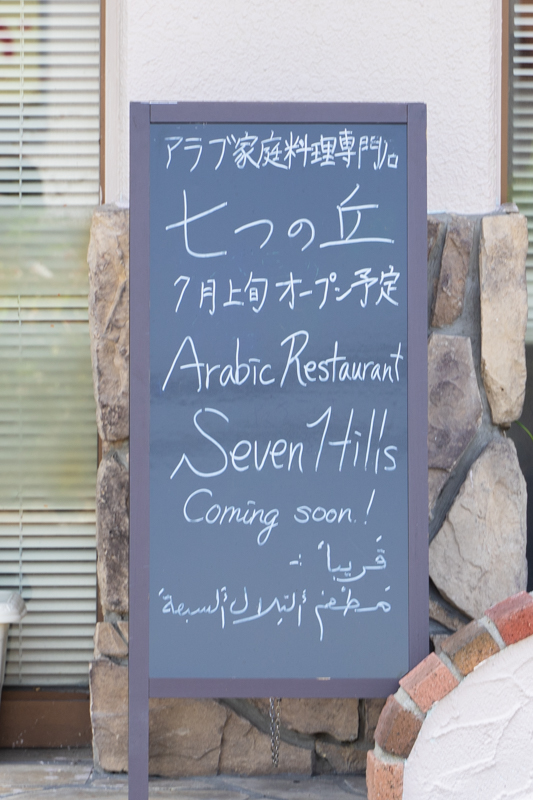 アラブ家庭料理専門店
七つの丘
7月上旬オープン予定
Arabic Restaurant
Seven Hills
Coming soon!
قريباً :-
مطعم التلال السبعة